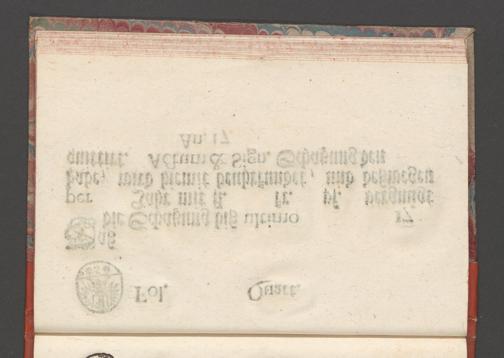 Fol. Quart.
Daß die Schatzung biß ultimo 17
per Jahr mit fl. kr. pf. vergnügt
habe, wird hiemit beuhrkundet, und deßwegen
quittirt. Actum & Sign. Schatzung den
An. 17